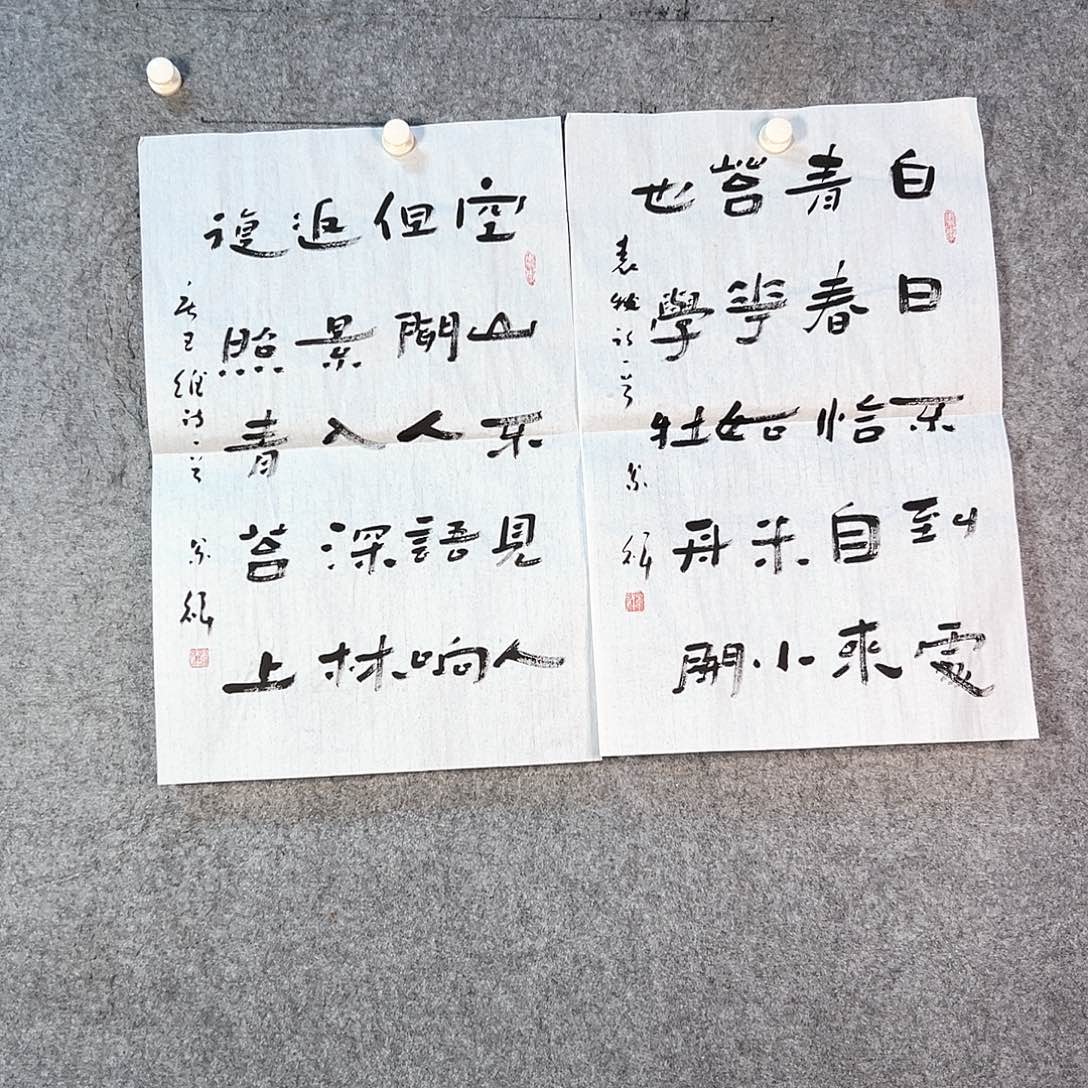 白日不到處
青春恰自來
苔華如米小
也學牡丹開
袁枚詩一首
空山不見人
但聞人語响
返景入深林
復照青苔上
唐王維詩一首